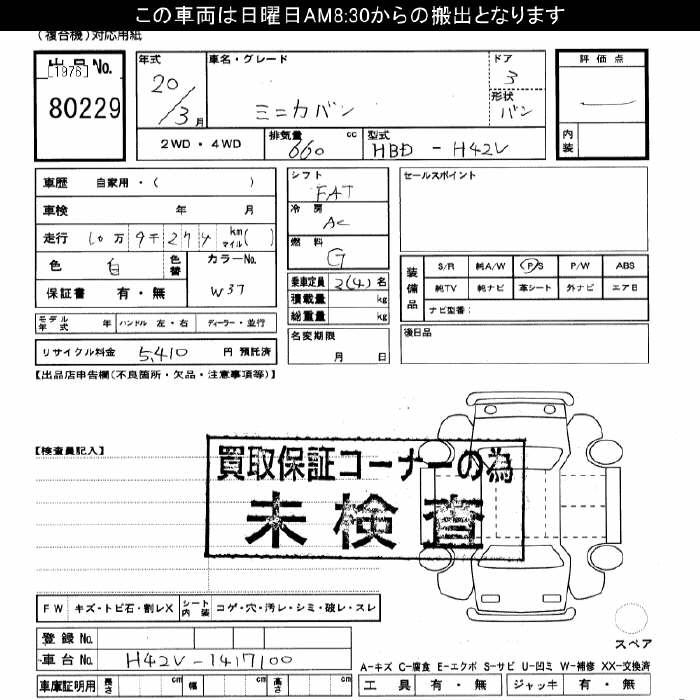 この車両は日曜日AM8:30からの搬出となります
(複合機)対応用紙
出品No.
[1976]
80229
年式
20/3月
車名・グレード
ミニカバン
ドア
3
形状
バン
評価点
内装
2WD・4WD
排気量 660 cc
型式 HBD-H42V
車歴 自家用・( )
車検 年 月
走行 10万9千274 km マイル( )
色 白 色替
カラーNo. W37
保証書 有・無
シフト FAT
冷房 AC
燃料 G
乗車定員 2(4)名
積載量 kg
総重量 kg
名変期限 月 日
セールスポイント
装備品 S/R 純A/W P/S P/W ABS
純TV 純ナビ 革シート 外ナビ エアB
ナビ型番:
後日品
モデル年式 年 ハンドル 左・右 ディーラー・並行
リサイクル料金 5,410 円 預託済
【出品店申告欄(不良箇所・欠品・注意事項等)】
【検査員記入】
買取保証コーナーの為
未検査
FW キズ・トビ石・割レX シート内装 コゲ・穴・汚レ・シミ・破レ・スレ
登録No.
車台No. H42V-1417100
車庫証明用 長さ cm 幅 cm 高さ cm
スペア
A-キズ C-腐食 E-エクボ S-サビ U-凹ミ W-補修 XX-交換済
工具 有・無 ジャッキ 有・無